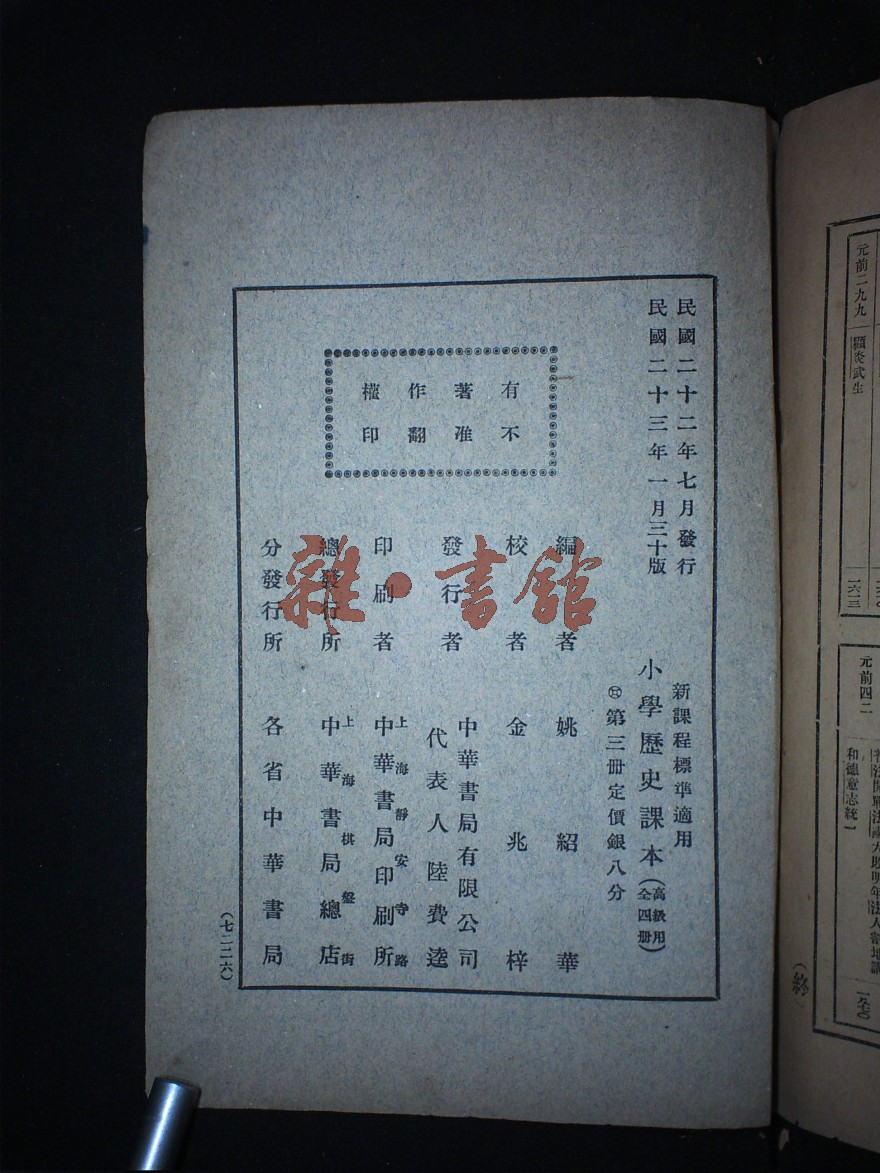 民國二十二年七月發行
民國二十三年一月三十版
有著作權
不准翻印
新課程標準適用
小學歷史課本（高級用全四冊）
第三冊定價銀八分
編者 姚紹華
校者 金兆梓
發行者 中華書局有限公司
代表人陸費逵
印刷者 上海靜安寺路
中華書局印刷所
總發行所 上海棋盤街
中華書局總店
分發行所 各省中華書局
（七二二六）
雜·書館
元前二九九
顧炎武生
一六一三
元前四二
和德意志統一
一八七〇
（終）